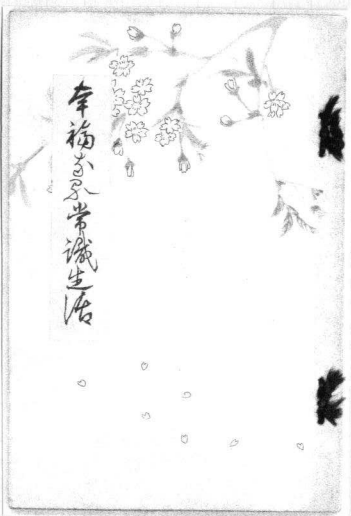 幸福なる常識生活